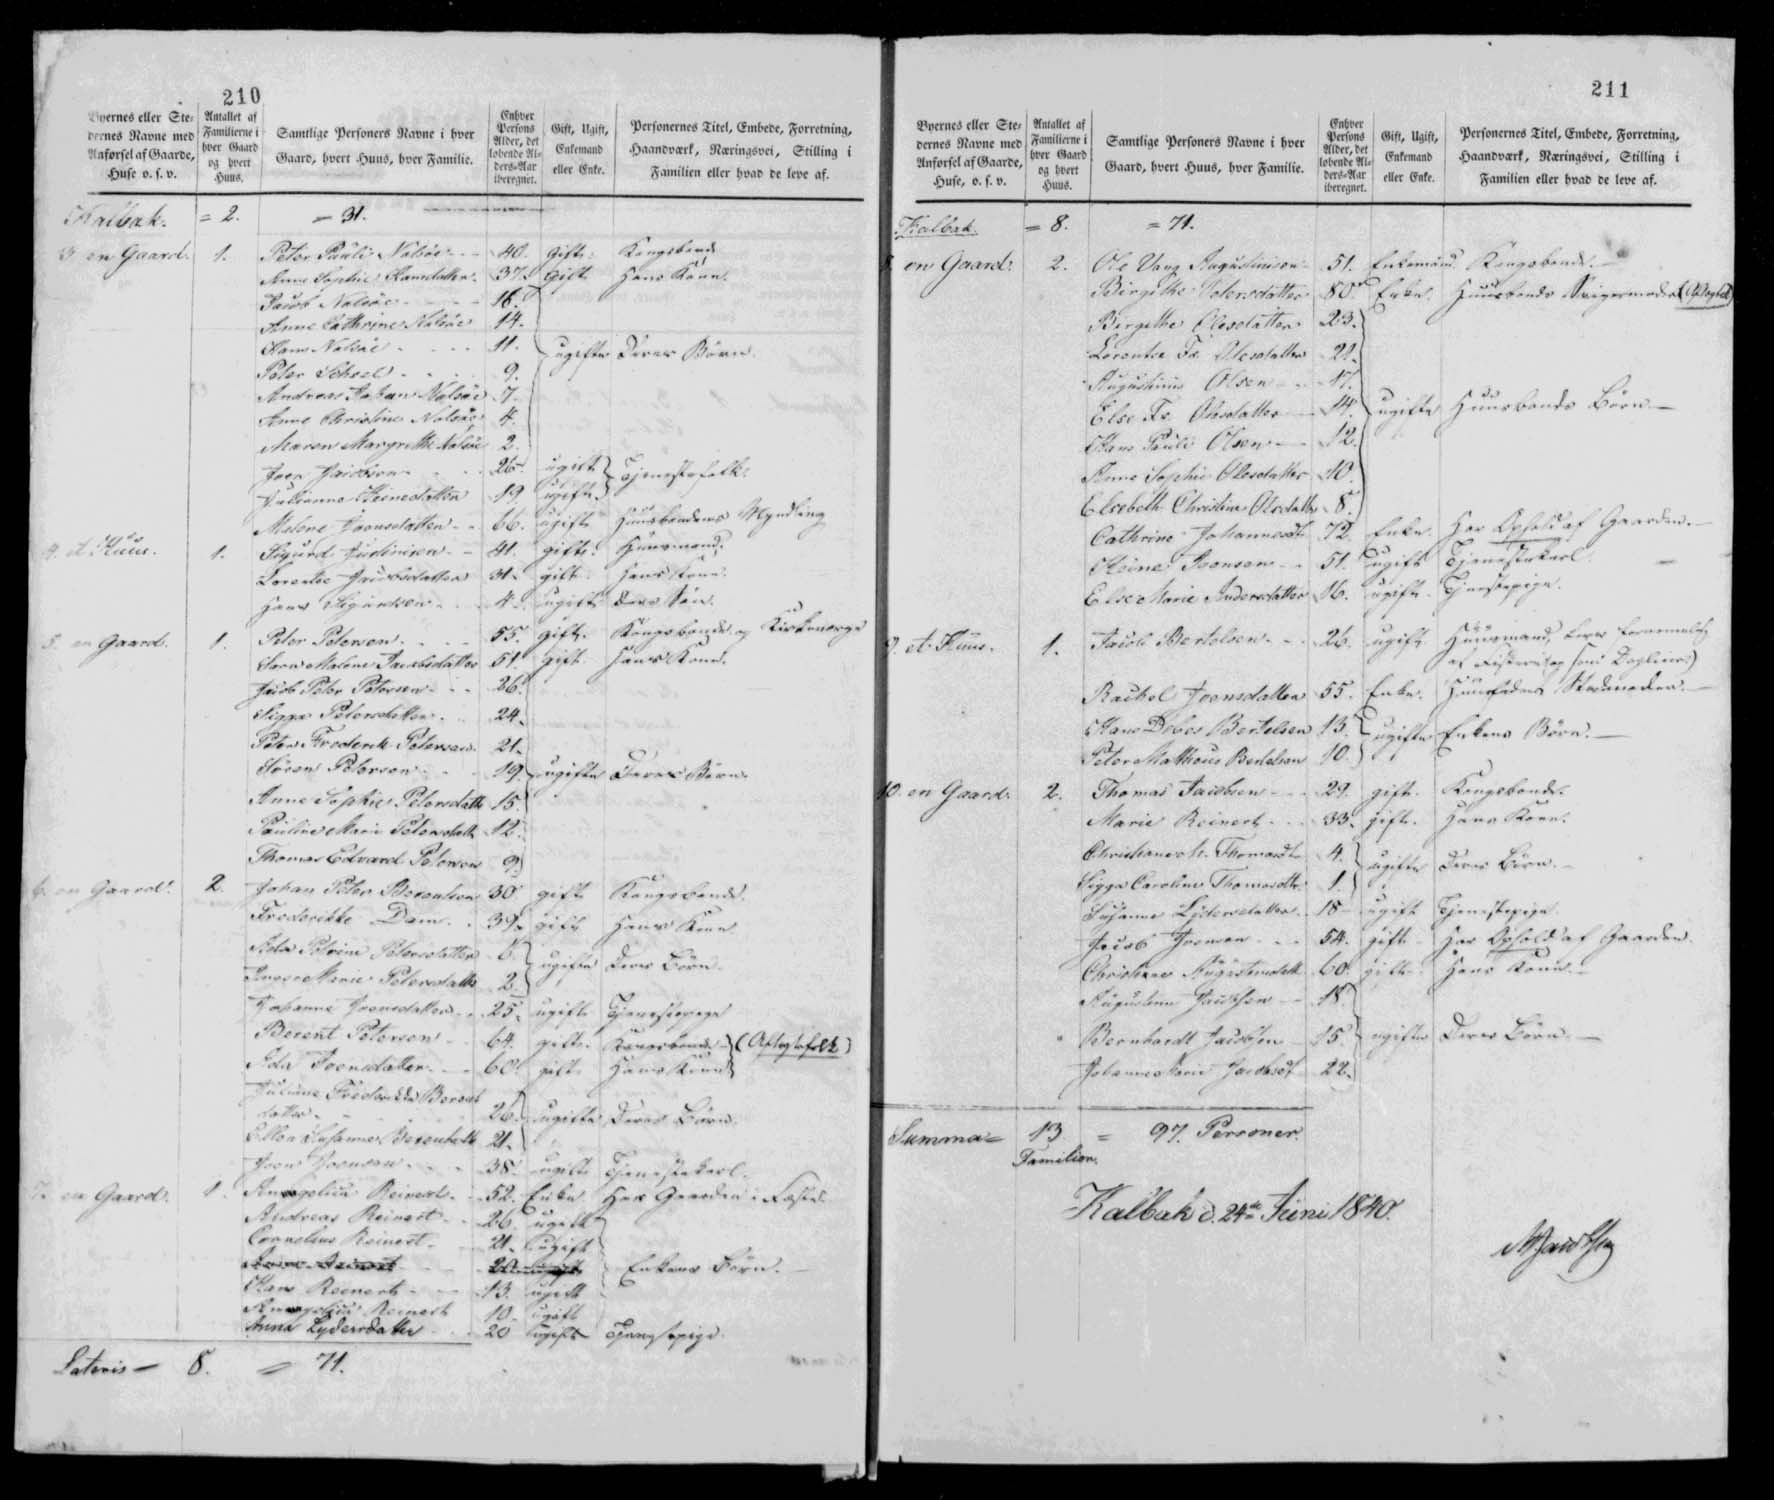 210
Byernes eller Ste-
dernes Navne med
Anførsel af Gaarde,
Huse o. s. v.
Antallet af
Familierne i
hver Gaard
og hvert
Huus.
Samtlige Personers Navne i hver
Gaard, hvert Huus, hver Familie.
Enhver
Persons
Alder, det
løbende Al-
ders-Aar
iberegnet.
Gift, Ugift,
Enkemand
eller Enke.
Personernes Titel, Embede, Forretning,
Haandværk, Næringsvei, Stilling i
Familien eller hvad de leve af.
Kalbak. = 2. = 31.
3 en Gaard. 1. Peter Pauli Nolsöe 40. gift. Kongsbonde
Anne Sophie Hansdatter 37. gift Hans Kone.
Jacob Nolsöe 16.
Anne Cathrine Nolsöe 14.
Hans Nolsöe 11. ugifte Deres Börn.
Peter 9.
Andreas Johan Nolsöe 7
Anne Christine Nolsöe 4.
Maren Margrethe Nolsöe 2.
Joen Jacobsen 26. ugift Tjenestefolk.
Julianne Heinesdatter 19 ugift
Malene Joensdatter 66. ugift Huusbondens Myndling
4. et Huus. 1. Sigurd 41. gift. Huusmand.
Lorentse Jacobsdatter 31. gift Hans Kone.
Hans Sigurdsen 4. ugift deres Sön.
5. en Gaard. 1. Peter Petersen 55. gift. Kongsbonde og Kirkeværge
Malene Jacobsdatter 51. gift Hans Kone.
Jacob Peter Petersen 26.
Sigga Petersdatter 24.
Peter Frederik Petersen 21.
Sören Petersen 19. ugifte Deres Börn.
Anne Sophie Petersdatt 15.
Pauline Marie Petersdatt 12.
Thomas Edvard Petersen 9.
6. en Gaard. 2. Johan Peter Berentsen 30 gift Kongsbonde.
Frederikke Dam 39. gift Hans Kone
Petersdatter 6. ugifte Deres Börn.
Marie Petersdatt 2.
Johanne Joensdatter 25. ugift Tjenestepige
Berent Petersen 64. gift. Kongsbonde (Aftægtsfolk)
Joensdatter 60. gift Hans Kone
Juliane Frederikke Berents
datter 26. ugifte Deres Börn.
Ellen Susanne Berentsdatt 21.
Joen Joensen 38. ugift Tjenestekarl.
7. en Gaard. 1. Angelica Reinert 52. Enke Har Gaarden i Fæste.
Andreas Reinert 26. ugift
Cornelius Reinert 21. ugift
Reinert 20 ugift Enkens Börn.
Hans Reinert 13. ugift
Angelica Reinert 10. ugift
Anna Lydersdatter 20 ugift Tjenestepige.
Lateris = 8. = 71.
211
Byernes eller Ste-
dernes Navne med
Anførsel af Gaarde,
Huse, o. s. v.
Antallet af
Familierne i
hver Gaard
og hvert
Huus.
Samtlige Personers Navne i hver
Gaard, hvert Huus, hver Familie.
Enhver
Persons
Alder, det
løbende Al-
ders-Aar
iberegnet.
Gift, Ugift,
Enkemand
eller Enke.
Personernes Titel, Embede, Forretning,
Haandværk, Næringsvei, Stilling i
Familien eller hvad de leve af.
Kalbak. = 8. = 71.
8. en Gaard. 2. Ole Vang Augustinisen 51. Enkemand Kongsbonde.
Birgithe Petersdatter 80. Enke. Huusbonds Svigermoder
Birgithe Olesdatter 23.
Lorentse Fr. Olesdatter 21.
Augustinus Olsen 17.
Else Fr. Olesdatter 14. ugifte Huusbonds Börn.
Hans Pauli Olsen 12.
Anne Sophie Olesdatter 10.
Elsebeth Christine Olesdatt 8.
Cathrine Johannesdt 72. Enke. Har Ophold af Gaarden.
Heine Joensen 51. ugift Tjenestekarl.
Else Marie Andersdatter 16. ugift. Tjenestepige.
9. et Huus. 1. Jacob Bertelsen 26. ugift Huusmand, lever fornemmelig
af Fiskeri og som Daglejer.
Rachel Joensdatter 55. Enke. Huusfaders Stedmoder.
Hans Debes Bertelsen 13. ugifte Enkens Börn.
Peter Matheus Bertelsen 10.
10. en Gaard. 2. Thomas Jacobsen 29. gift. Kongsbonde.
Marie Reinert 33. gift. Hans Kone.
Thomasdt 4. ugifte Deres Börn.
Sigga Caroline Thomasdtr 1.
Susanne Lydersdatter 18 ugift Tjenestepige.
Jacob Joensen 54. gift Har Ophold af Gaarden.
Christiane Augustinsdatt 60. gift Hans Kone.
Augustinus Jacobsen 18.
Bernhardt Jacobsen 15. ugifte Deres Börn.
Johanne Marie Jacobsdt 22.
Summa = 13 = 97. Personer.
Familier.
Kalbak d. 24de Juni 1840.